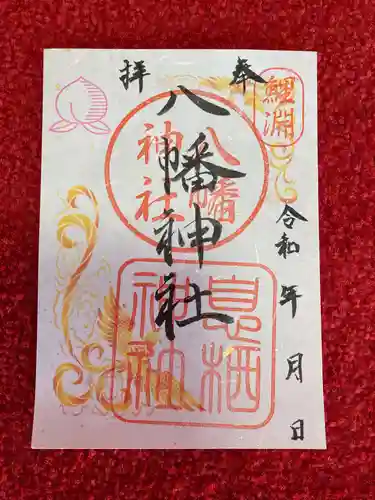 奉
拝
鯉淵
八幡神社
八幡
神社
息栖
神社
令和 年 月 日